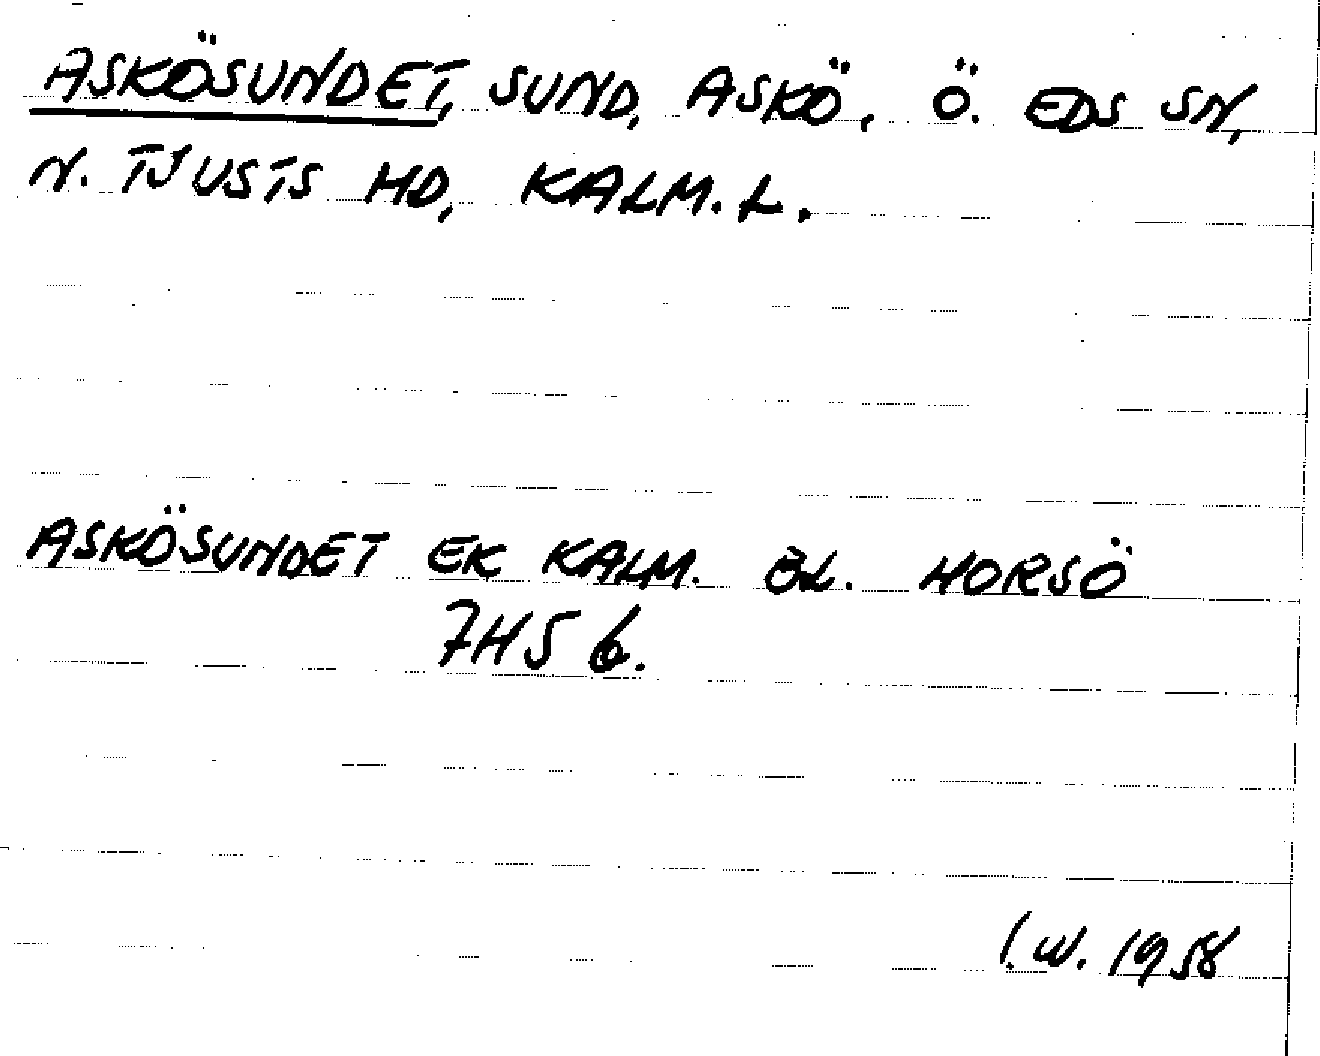 ASKÖSUNDET, SUND, ASKÖ, Ö. EDS SN,
N. TJUSTS HD, KALM. L.
ASKÖSUNDET EK KALM. BL. HORSÖ
7H5 6.
I.W. 1958